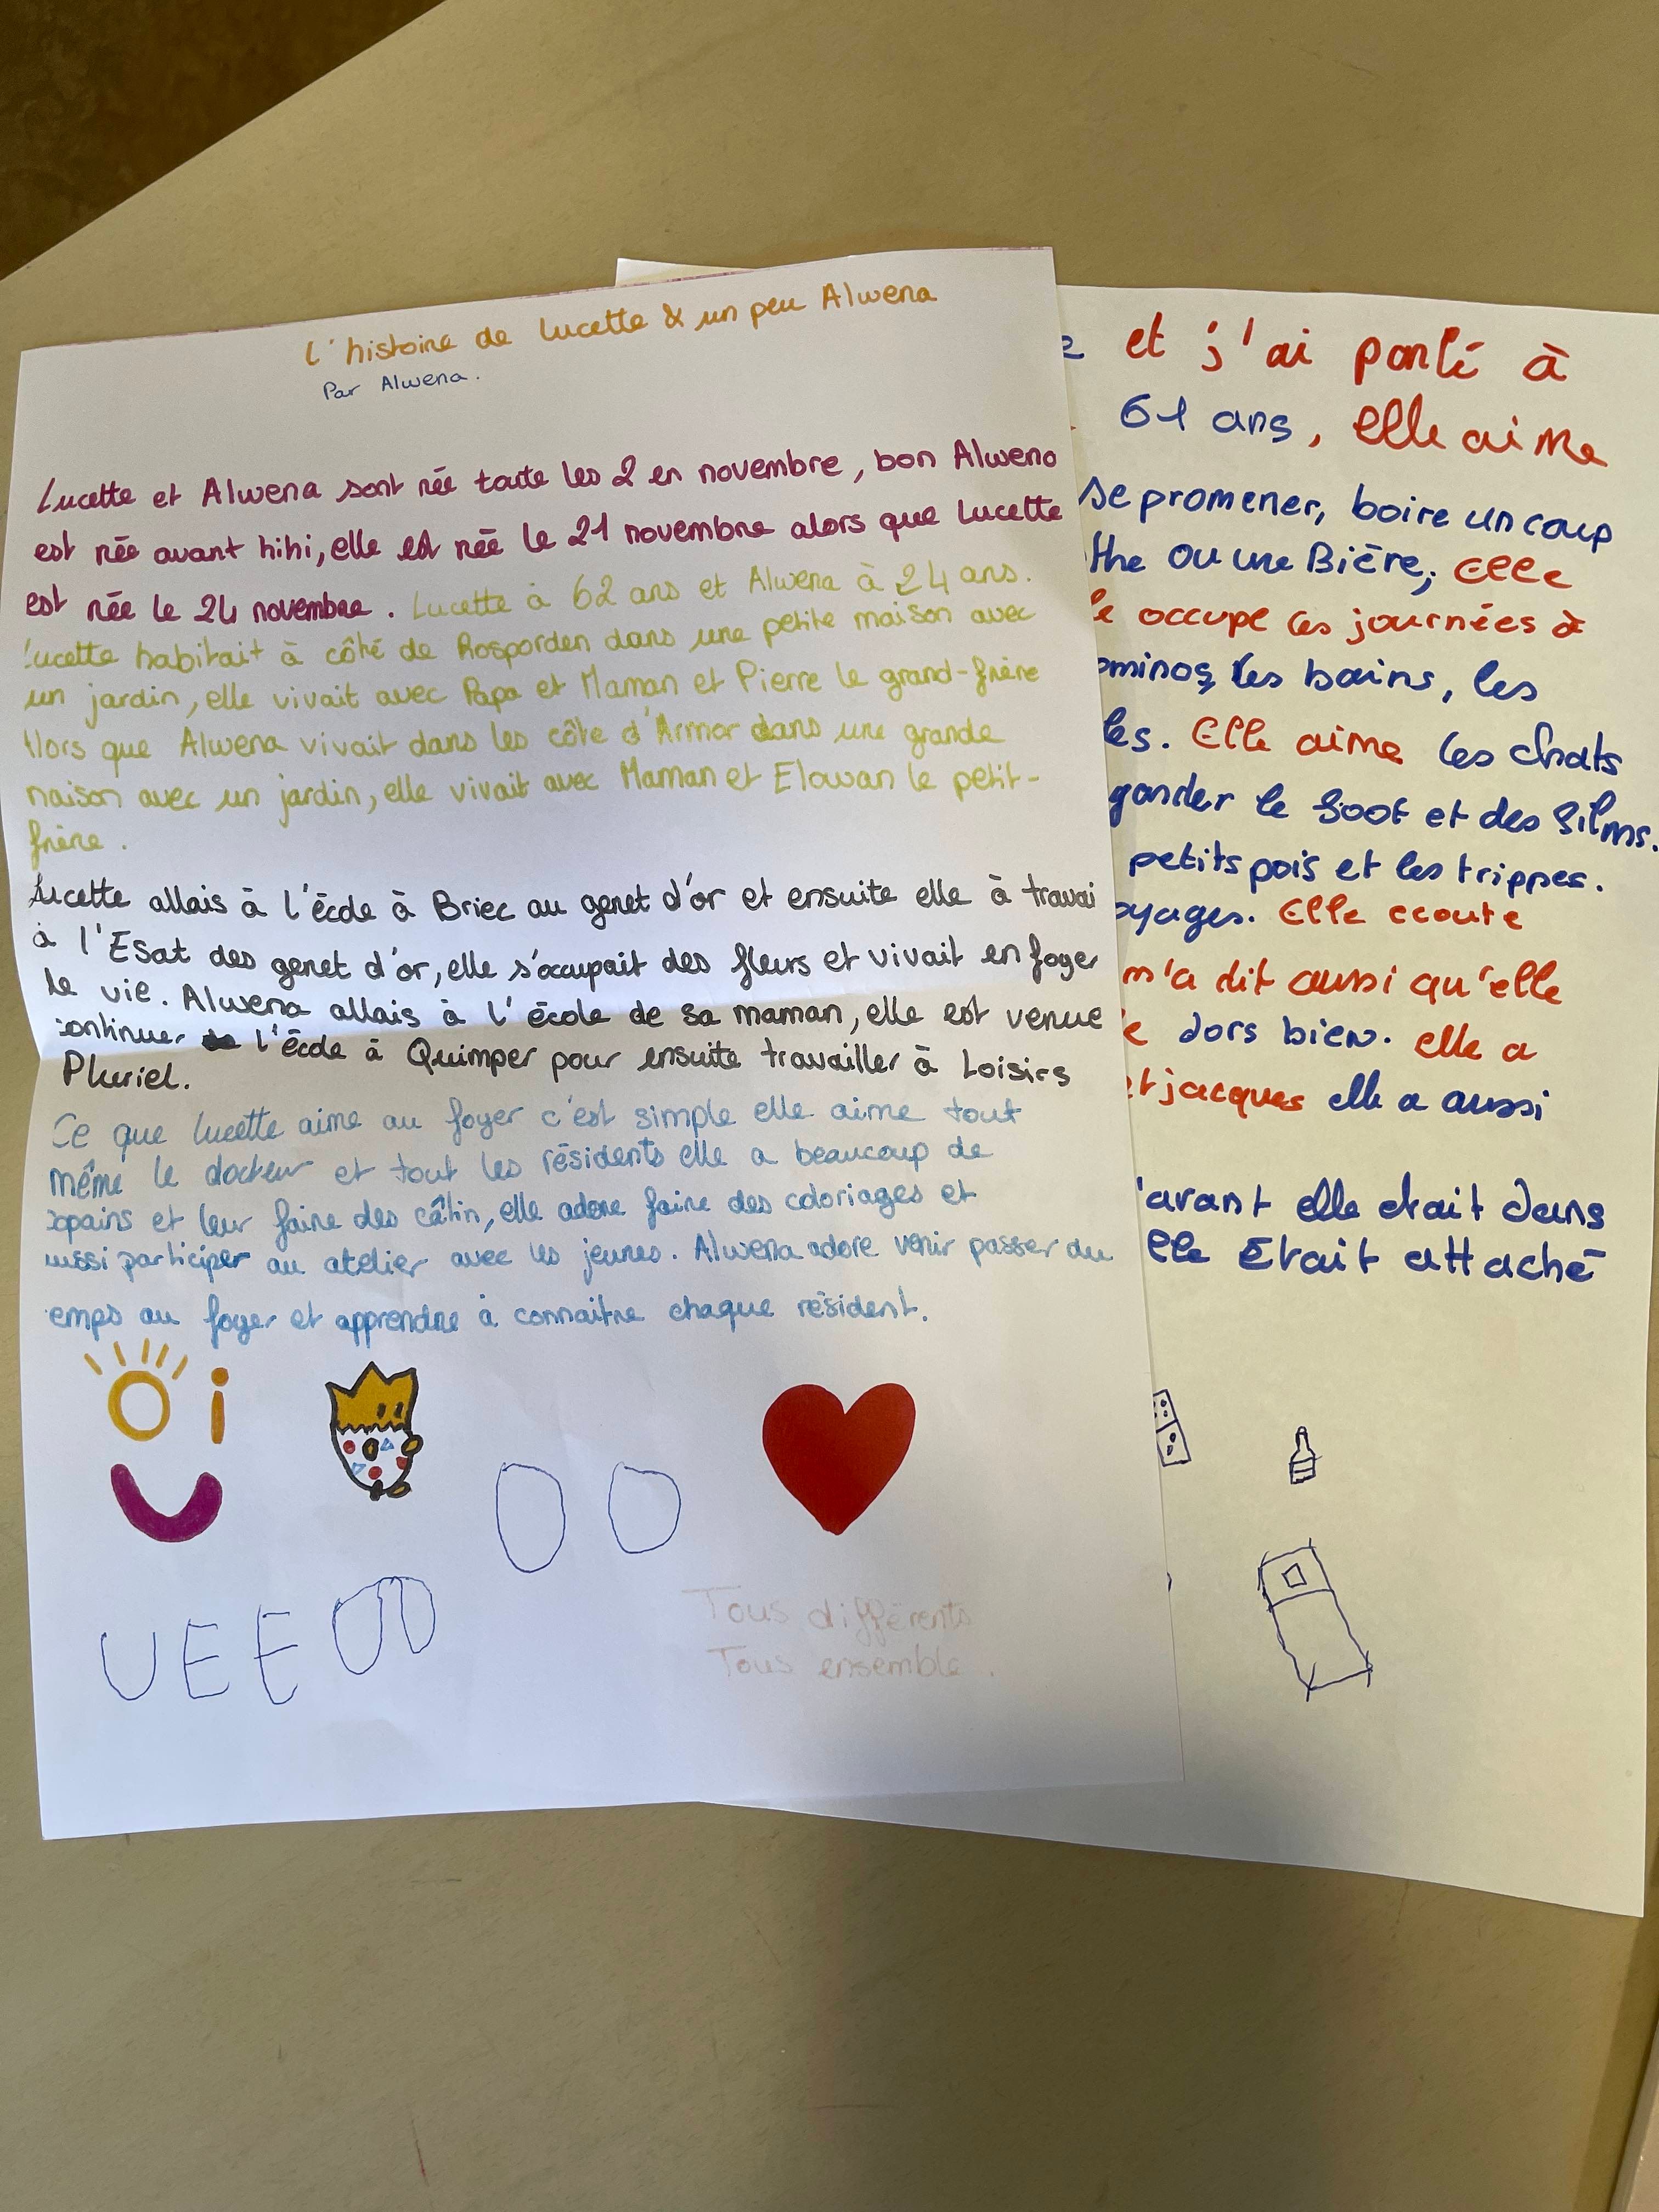 L'histoire de Lucette & un peu Alwena
Par Alwena.
Lucette et Alwena sont née toute les 2 en novembre, bon Alwena
est née avant hihi, elle est née le 21 novembre alors que Lucette
est née le 24 novembre. Lucette à 62 ans et Alwena à 24 ans.
Lucette habitait à côté de Rosporden dans une petite maison avec
un jardin, elle vivait avec Papa et Maman et Pierre le grand-frère
Alors que Alwena vivait dans les côte d'Armor dans une grande
maison avec un jardin, elle vivait avec Maman et Elowan le petit-
frère.
Lucette allais à l'école à Briec au genet d'or et ensuite elle à travai
à l'Esat des genet d'or, elle s'occupait des fleurs et vivait en foyer
de vie. Alwena allais à l'école de sa maman, elle est venue
continuer l'école à Quimper pour ensuite travailler à Loisirs
Pluriel.
Ce que Lucette aime au foyer c'est simple elle aime tout
même le docteur et tout les résidents elle a beaucoup de
copains et leur faire des câlin, elle adore faire des coloriages et
aussi participer au atelier avec les jeunes. Alwena adore venir passer du
temps au foyer et apprendre à connaitre chaque résident.
Oi
UEE
Tous différents
Tous ensemble.
et j'ai parlé à
61 ans, elle aime
se promener, boire un coup
the ou une Bière, elle
occupe ces journées à
ominos, les bains, les
les. Elle aime les chats
garder le foot et des films.
petits pois et les trippes.
oyages. Elle ecoute
m'a dit aussi qu'elle
dors bien. elle a
et jacques elle a aussi
avant elle etait dans
elle Etait attaché